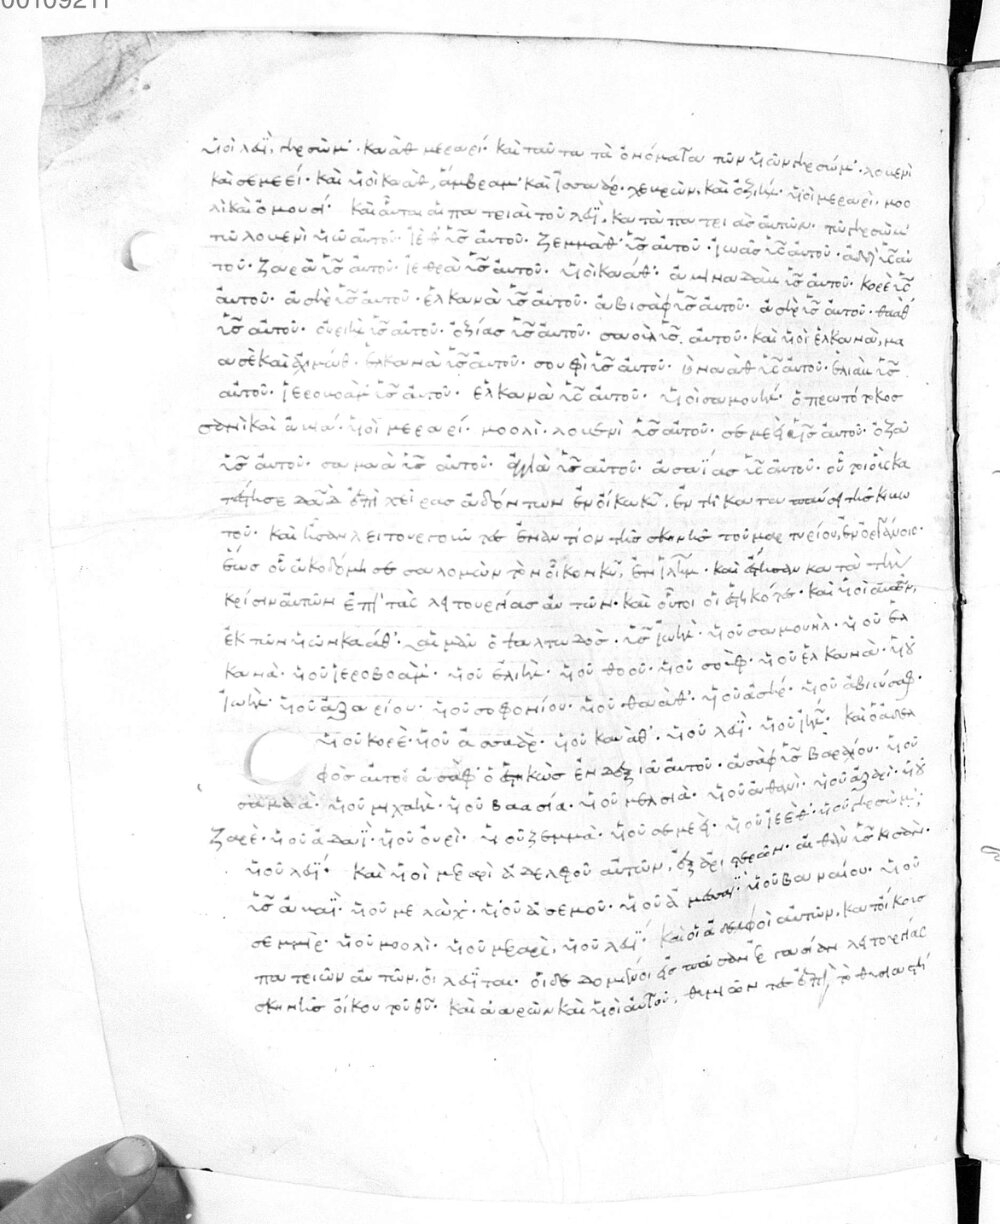 00109211
υἱοὶ λευΐ, γηρσὼμ· καὰθ μεραρί· καὶ ταῦτα τὰ ὀνόματα τῶν υἱῶν γηρσώμ· λοβενὶ
καὶ σεμεεί· καὶ υἱοὶ καάθ, ἄμβραμ· καὶ ἰσσαάρ· χεβρὼν, καὶ ὀζιήλ· υἱοὶ μεραρί· μοο
λὶ καὶ ὁμουσί· καὶ αὗται αἱ πατριαὶ τοῦ λευΐ, κατὰ πατριὰς αὐτῶν· τῷ γηρσὼμ
τῷ λοβενὶ υἱῷ αὐτοῦ· ἰὲθ υἱὸς αὐτοῦ· ζεμμὰθ υἱὸς αὐτοῦ· ἰωὰς υἱὸς αὐτοῦ· υἱὸς αὐ
τοῦ· ζαρὰ υἱὸς αὐτοῦ· ἰεθρὰ υἱὸς αὐτοῦ· υἱοὶ καάθ· ἀμιναδὰμ υἱὸς αὐτοῦ· κορὲ υἱὸς
αὐτοῦ· ἀσὴρ υἱὸς αὐτοῦ· ἑλκανὰ υἱὸς αὐτοῦ· ἀβισὰφ υἱὸς αὐτοῦ· ἀσὴρ υἱὸς αὐτοῦ· θαὰθ
υἱὸς αὐτοῦ· οὐριὴλ υἱὸς αὐτοῦ· ὀζίας υἱὸς αὐτοῦ· σαοὺλ υἱὸς αὐτοῦ· καὶ υἱοὶ ἑλκανά, μα
ασὲ καὶ ἀλιμώθ· ἑλκανὰ υἱὸς αὐτοῦ· σουφὶ υἱὸς αὐτοῦ· υἱὸς αὐτοῦ· ἑλιὰμ υἱὸς
αὐτοῦ· ἱεροβοὰμ υἱὸς αὐτοῦ· ἑλκανὰ υἱὸς αὐτοῦ· υἱοὶ σαμουήλ· ὁ πρωτότοκος
σανὶ καὶ ἀβιά· υἱοὶ μεραρί· μοολί· λοβενὶ υἱὸς αὐτοῦ· σεμεῒ υἱὸς αὐτοῦ· ὀζὰ
υἱὸς αὐτοῦ· σαμαὰ υἱὸς αὐτοῦ· υἱὸς αὐτοῦ· ἀσαΐας υἱὸς αὐτοῦ· οὗτοι οὓς κα
τέστησε δαδ ἐπὶ χεῖρας ἀδόντων ἐν οἴκῳ κυ, ἐν τῇ καταπαύσει τῆς κιβω
τοῦ· καὶ ἦσαν λειτουργοῦντες ἐναντίον τῆς σκηνῆς τοῦ μαρτυρίου, ἐν ὀργάνοις·
ἕως οὗ ᾠκοδόμησε σαλομὼν τὸν οἶκον κυ, ἐν ἱλημ· καὶ ἔστησαν κατὰ τὴν
κρίσιν αὐτῶν ἐπὶ τὰς λειτουργίας αὐτῶν· καὶ οὗτοι οἱ ἑστηκότες· καὶ υἱοὶ αὐτῶν,
ἐκ τῶν υἱῶν καάθ· αἱμὰν ὁ ψαλτωδὸς· υἱὸς ἰωήλ· υἱοῦ σαμουήλ· υἱοῦ ἑλ
κανά· υἱοῦ ἱεροβοάμ· υἱοῦ ἐλιήλ· υἱοῦ θοού· υἱοῦ σούφ· υἱοῦ ἑλκανά· υἱοῦ
ἰωήλ· υἱοῦ ἀζαρίου· υἱοῦ σοφονίου· υἱοῦ θαάθ· υἱοῦ ἀσήρ· υἱοῦ ἀβιασάφ·
υἱοῦ κορέ· υἱοῦ ἰσσαάρ· υἱοῦ καάθ· υἱοῦ λευΐ· υἱοῦ ιηλ· καὶ ὁ ἀδελ
φὸς αὐτοῦ ἀσάφ· ὁ ἑστηκὼς ἐν δεξιᾷ αὐτοῦ· ἀσὰφ υἱὸς βαραχίου· υἱοῦ
σαμαά· υἱοῦ μιχαήλ· υἱοῦ βαασία· υἱοῦ μελχία· υἱοῦ ἀθανί· υἱοῦ ἀζαρί· υἱοῦ
ζαρέ· υἱοῦ ἀδαΐ· υἱοῦ οὐρί· υἱοῦ ζεμμά· υἱοῦ σεμεΐ· υἱοῦ ἰεέθ· υἱοῦ γηρσώμ,
υἱοῦ λευΐ· καὶ υἱοὶ μεραρὶ ἀδελφοῦ αὐτῶν, ἐξ ἀριστερῶν· αἰθὰν υἱὸς κισὰν·
υἱοῦ μελώχ· υἱοῦ ἀσεβοῦ· υἱοῦ υἱοῦ βαναίου· υἱοῦ
σεμμήρ· υἱοῦ μοολί· υἱοῦ μεραρί, υἱοῦ λευΐ· καὶ οἱ ἀδελφοὶ αὐτῶν, κατ' οἴκους
πατριῶν αὐτῶν, οἱ λευῖται· οἱ δεδομένοι εἰς πᾶσαν ἐργασίαν λειτουργίας
σκηνῆς οἴκου τοῦ θυ· καὶ ἀαρὼν καὶ υἱοὶ αὐτοῦ, θυμιῶντες ἐπὶ τὸ θυσιαστή